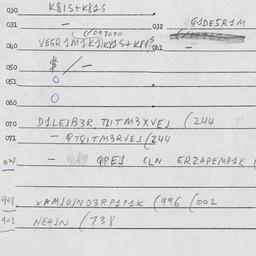 030 K81S+K81S
031 - 032 G1DE5R1M
040 VE5R1M1K1)K41S+K81S 041 -
050 $/-
051 0
060 0
070 D1LEJB3R.T8ITM3XVEJ (244
071 - QT8ITM3RVEJ(244
074 - QPEJ CLN ERZAPEMP1K (
901 XAMJOJND3RP1Y1K (996 (002
902 NEHJN (738